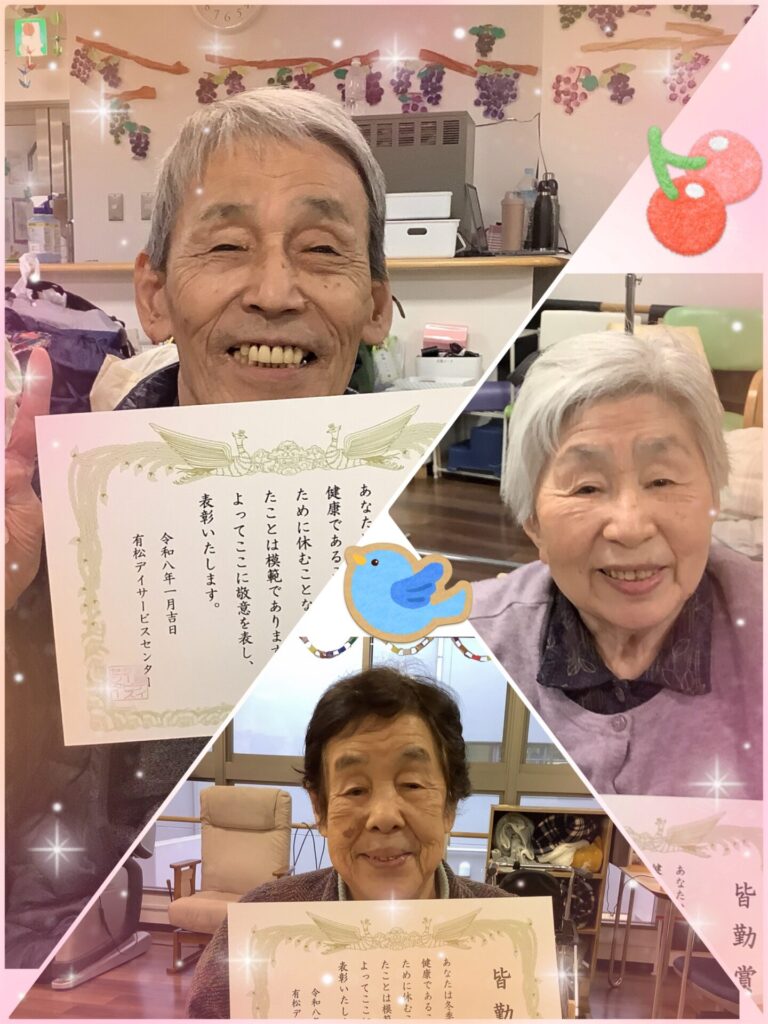 あなた
健康であるこ
ために休むことな
たことは模範であります
よってここに敬意を表し、
表彰いたします。
令和八年一月吉日
有松デイサービスセンター
皆勤賞
あなた
皆勤
あなたは冬季
健康である
ために休む
たことは模範
よってここに
表彰いたしま
令和八年
有松デ